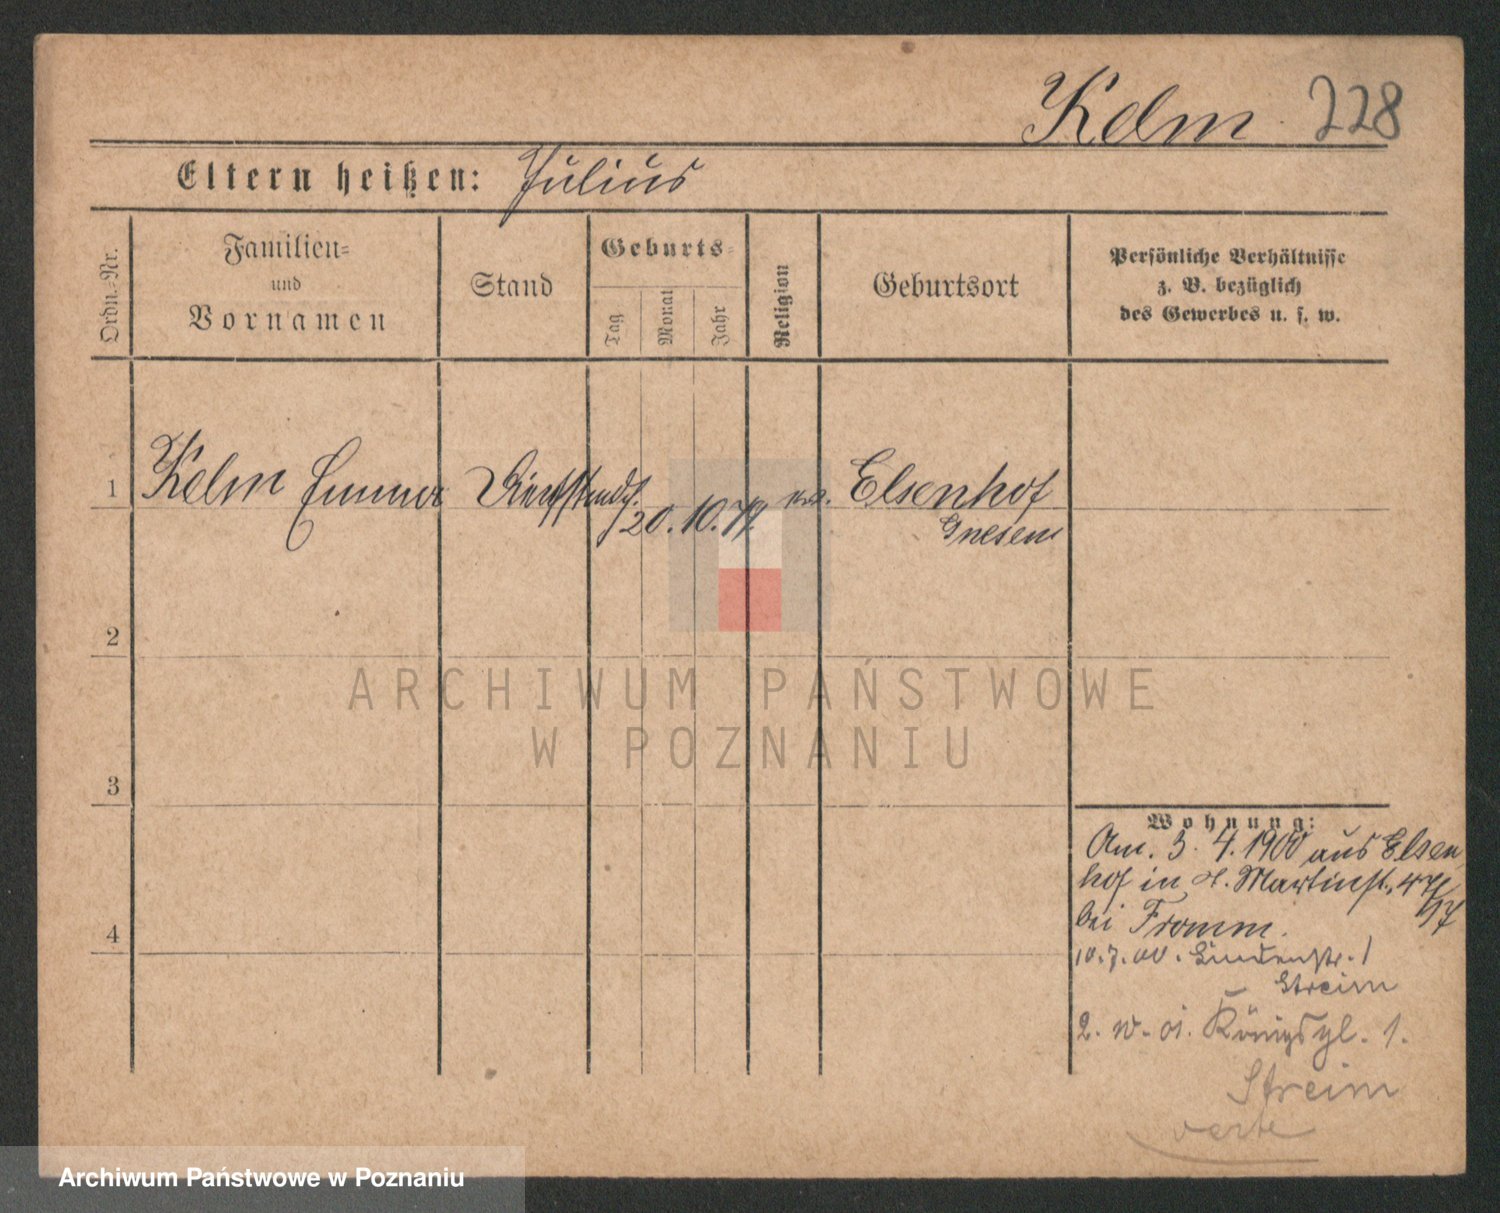 Kelm 228
Eltern heißen: Julius
Ordn.-Nr.
Familien=
und
Vornamen
Stand
Geburts=
Tag
Monat
Jahr
Religion
Geburtsort
Persönliche Verhältnisse
z. B. bezüglich
des Gewerbes u. s. w.
1 Kelm Emma 20. 10. Elsenhof
Gnesen
2
ARCHIWUM PAŃSTWOWE
W POZNANIU
3
Wohnung:
Am. 3. 4. 1900 aus Elsen
hof in St. Martinst.
bei Fromm.
10. 7. 00. 1
Streim
Königspl. 1.
Streim
verte
4
Archiwum Państwowe w Poznaniu